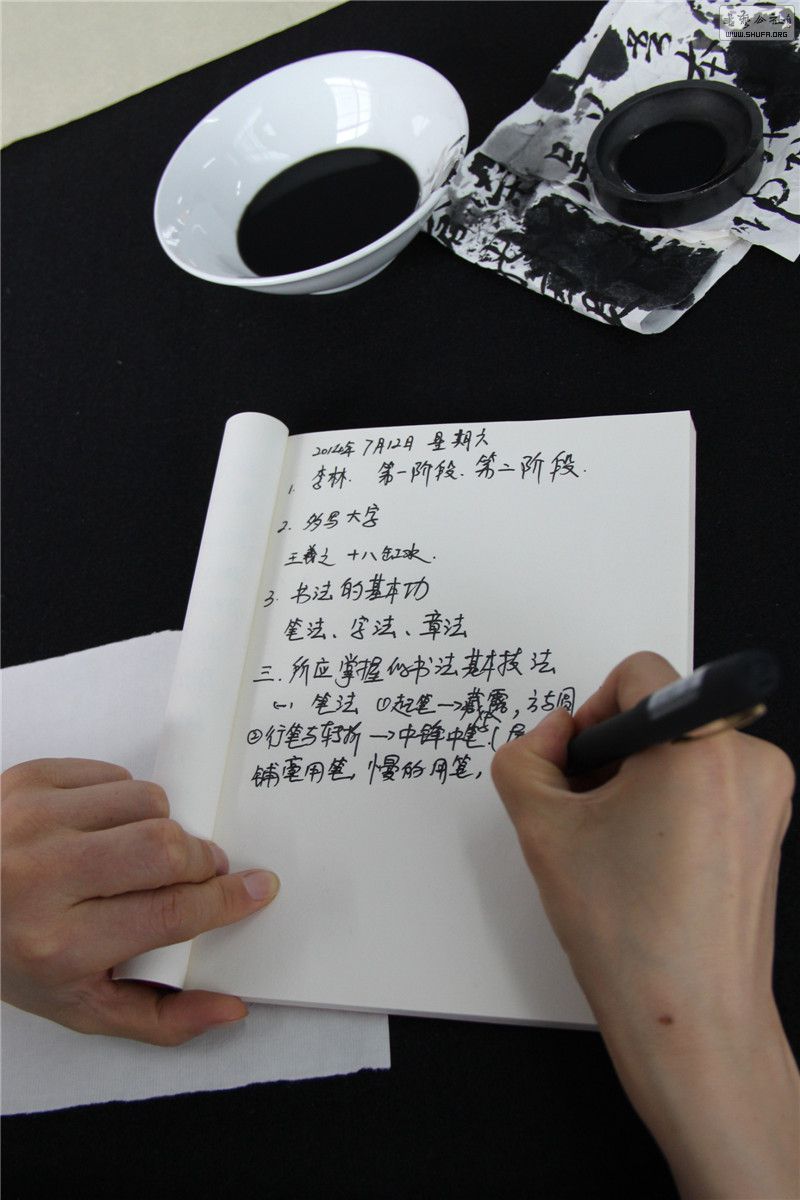 WWW.SHUFA.ORG
2014年7月12日 星期六
1. 李林. 第一阶段. 第二阶段.
2. 多写大字
王羲之 十八缸水.
3. 书法的基本功
笔法、字法、章法
三. 所应掌握的书法基本技法
(一) 笔法 ①起笔→藏露, 方与圆
②行笔与转折→中锋中笔(
铺毫用笔, 慢的用笔,